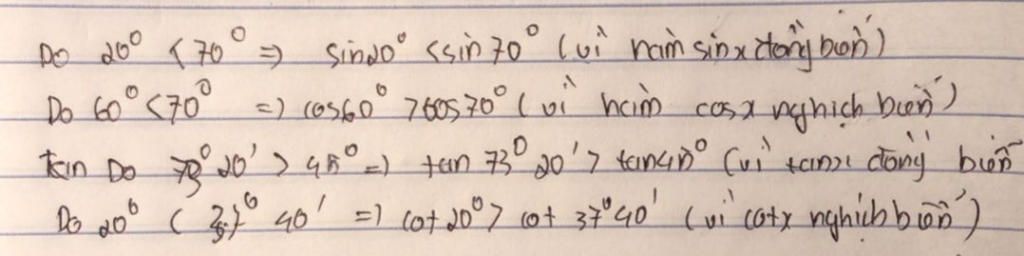 Do 20° < 70° => sin20° < sin 70° (vì hàm sin x đồng biến)
Do 60° < 70° => cos60° > cos70° (vì hàm cosx nghịch biến)
tan Do 73° 20' > 45° => tan 73° 20' > tan45° (vì tanx đồng biến
Do 20° < 37° 40' => cot 20° > cot 37° 40' (vì cotx nghịch biến)